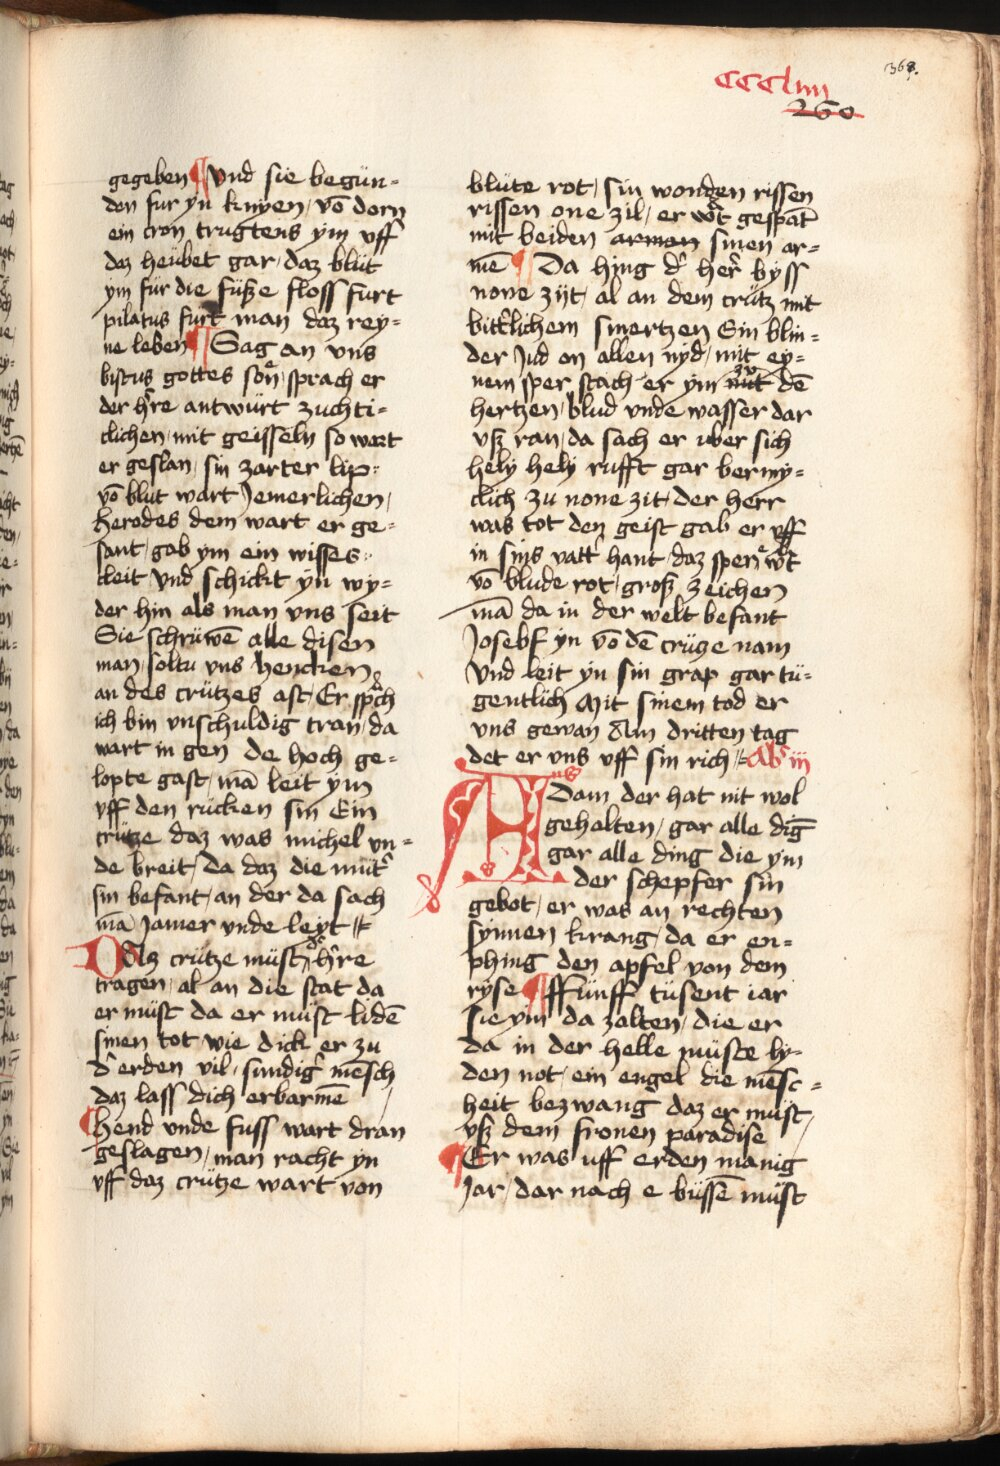 368.
CCCliiii
260
gegeben ¶ Vnd sie begün-
den fur yn knyen / vō dorn
ein cron trugtens ym vff
daz heübet gar / daz blüt
ym für die füße floss furt
pilatus furt man daz rey-
ne leben ¶ Sag an vns
bistus gottes son / sprach er
der h're antwürt zuchti-
clichen / mit geisseln so wart
er geslan / sin zarter lip :
vō blut wart Jemerlichen /
herodes dem wart er ge-
sant / gab ym ein wisses :
cleit vnd schickt yn wy-
der hin als man vns seit
Sie schrüwē alle disen
man / soltu vns hencken
an des crützes ast / Er sp'ch
ich bin vnschuldig tran / da
wart in gen de hoch ge-
lopte gast / mā leit ym
vff den rücken sin Ein
crütze daz was michel vn-
de breit / da daz die müt'
sin befant / an der da sach
mā Jamer vnde leyt /
DAz crütze müst d' h're
tragen / al an die stat da
er müst da er müst lidē
sinen tot / wie dick er zu
d' erden vil / sundig' mēsch
daz lass dich erbarmē
¶ hend vnde fuss wart dran
geslagen / man racht yn
vff daz crütze wart von
blüte rot / sin wonden rissen
rissen one zil / er w't gespāt
mit beiden armen sinen ar-
mē ¶ Da hing d' her' byss
none zijt / al an dem crütz mit
bitt'lichem smertzen Ein blin-
der Jud on allen nyd / mit ey-
nem sper stach er ym mit zü dē
hertzen / blud vnde wasser dar
vß ran / da sach er uber sich
hely hely rufft gar bermy-
clich zu none zit / der herr
was tot den geist gab er vff
in sins vatt' hant / daz sper w't
vō blude rot / groß zeichen
mā da in der welt befant
Josebf yn vō dē crüge nam
Vnd leit yn sin grap gar tü-
gentlich Mit sinem tod er
vns gewan Am dritten tag
det er vns vff sin rich / Ab' iij
ADam der hat nit wol
gehalten / gar alle dīg
gar alle ding die ym
der schepfer sin
gebot / er was an rechten
synnen krang / da er en-
phing den apfel von dem
ryse ¶ ffünff tüsent iar
sie ym da zalten / die er
da in der helle müste ly-
den not / ein engel die mēsc-
heit bezwang daz er müst /
vß dem fronen paradise
¶ Er was uff erden manig
Jar / dar nach e büssē müst